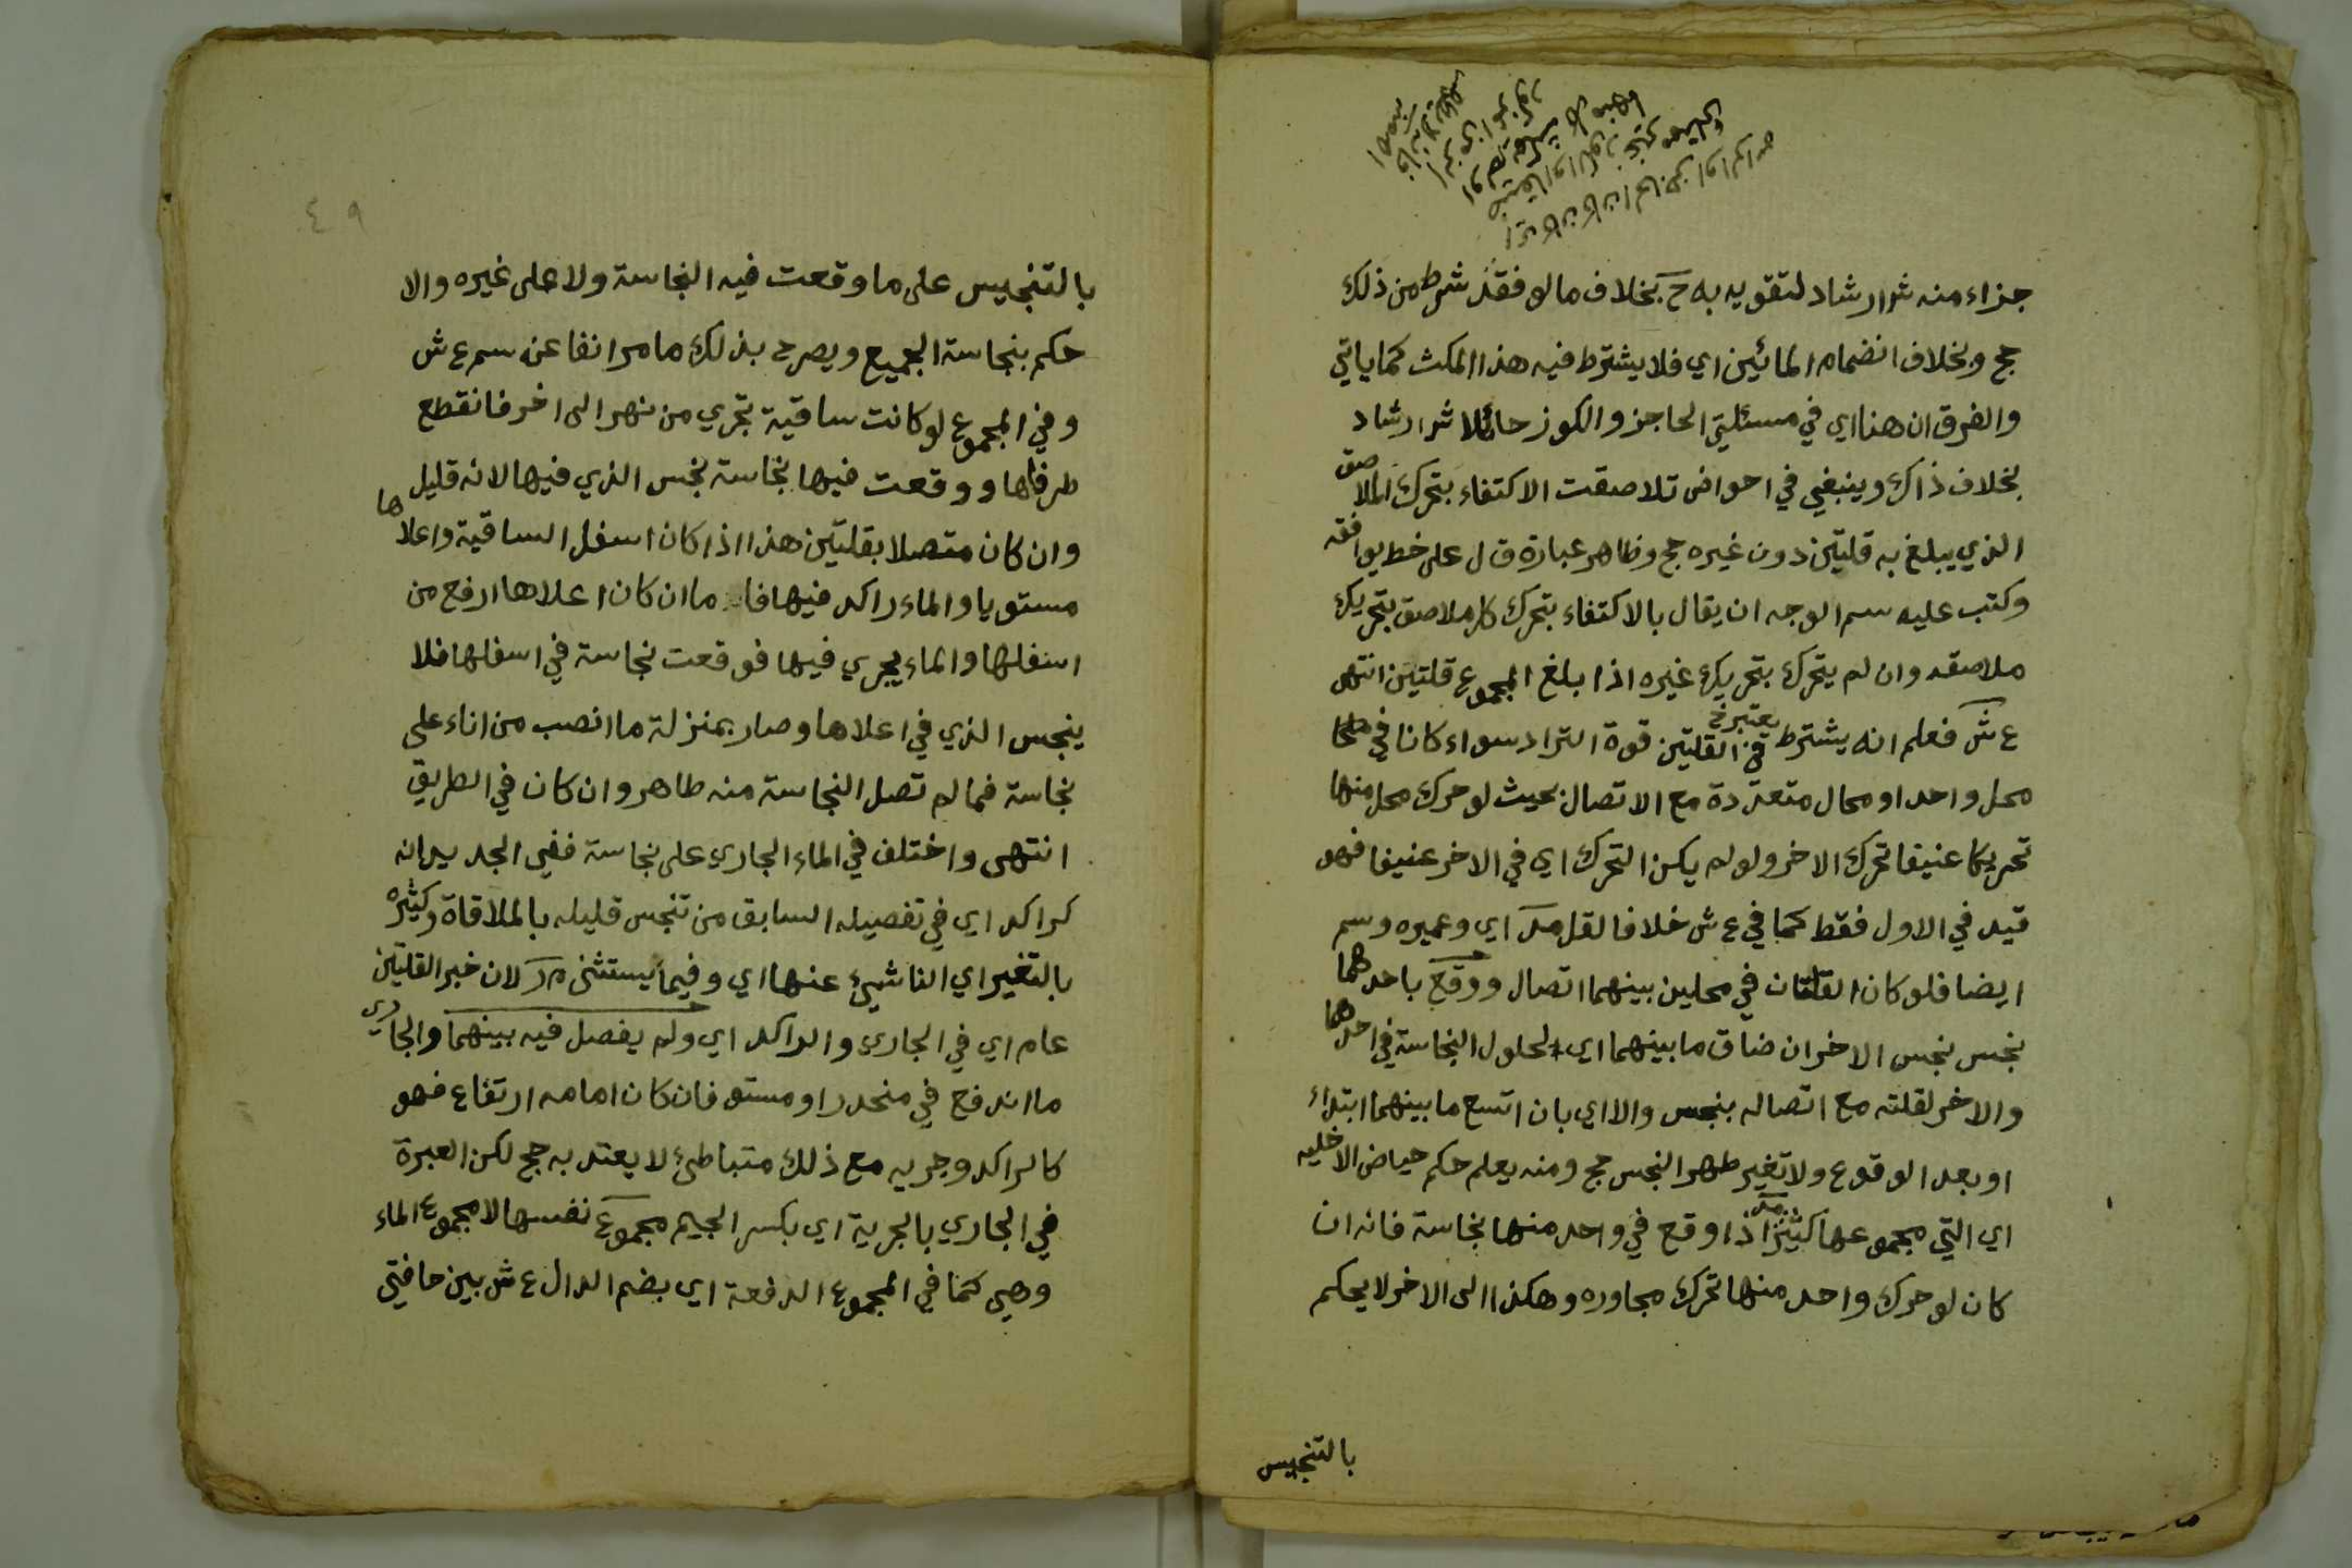 جزاء منه شرارشاد لتقويه به ح بخلاف ما لو فقد شرط من ذلك
حج وبخلاف انضمام المائين اي فلا يشترط فيه هذا المكث كما ياتي
والفرق ان هنا اي في مسئلتي الحاجز والكوز حائلا شرارشاد
بخلاف ذاك وينبغي في احواض تلاصقت الاكتفاء بتحرك الملاصق
الذي يبلغ به قلتين دون غيره حج وظاهر عبارة ق ل على خط يوافقه
وكتب عليه سم الوجه ان يقال بالاكتفاء بتحرك كل ملاصق بتحريك
ملاصقه وان لم يتحرك بتحريك غيره اذا بلغ المجموع قلتين انتهى
ع ش فعلم انه يشترط يعتبر خ في القلتين قوة التراد سواء كانا في
محل واحد او محال متعددة مع الاتصال بحيث لو حرك محل منها
تحريكا عنيفا تحرك الاخر ولو لم يكن التحرك اي في الاخر عنيفا فهو
قيد في الاول فقط كما في ع ش خلافا لقل مد اي وعميره وسم
ايضا فلو كان القلتان في محلين بينهما اتصال ووقع باحدهما
نجس نجس الاخر ان ضاق ما بينهما اي لحلول النجاسة في احدهما
والاخر لقلته مع اتصاله بنجس والا اي بان اتسع ما بينهما ابتداء
او بعد الوقوع ولا تغير طهر النجس حج ومنه يعلم حكم حياض الاخليه
اي التي مجموعها كثير مد اذا وقع في واحد منها نجاسة فانه ان
كان لو حرك واحد منها تحرك مجاوره وهكذا الى الاخر لا يحكم
بالتنجيس
٤٩
بالتنجيس على ما وقعت فيه النجاسة ولا على غيره والا
حكم بنجاسة الجميع ويصرح بذلك ما مر انفا عن سم ع ش
وفي المجموع لو كانت ساقية تجري من نهر الى اخر فانقطع
طرفاها ووقعت فيها نجاسة نجس الذي فيها لانه قليل
وان كان متصلا بقلتين هذا اذا كان اسفل الساقية واعلاها
مستويا والماء راكد فيها فا ما ان كان اعلاها ارفع من
اسفلها والماء يجري فيها فوقعت نجاسة في اسفلها فلا
ينجس الذي في اعلاها وصار بمنزلة ما انصب من اناء على
نجاسة فما لم تصل النجاسة منه طاهر وان كان في الطريق
انتهى واختلف في الماء الجاري على نجاسة ففي الجديد انه
كراكد اي في تفصيله السابق من تنجس قليله بالملاقاة وكثيره
بالتغير اي الناشئ عنها اي وفيما يستثنى م ر لان خبر القلتين
عام اي في الجاري والراكد اي ولم يفصل فيه بينهما والجاري
ما اندفع في منحدر او مستو فان كان امامه ارتفاع فهو
كالراكد وجريه مع ذلك متباطئ لا يعتد به حج لكن العبرة
في الجاري بالجرية اي بكسر الجيم مجموع نفسها لا مجموع الماء
وهي كما في المجموع الدفعة اي بضم الدال ع ش بين حافتي